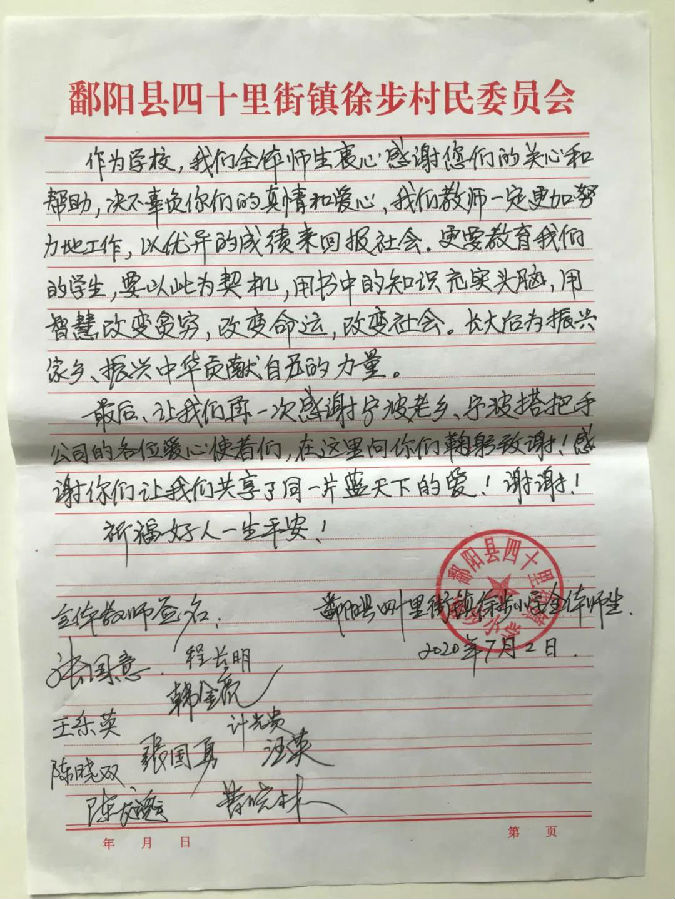 鄱阳县四十里街镇徐步村民委员会
作为学校，我们全体师生衷心感谢您们的关心和
帮助，决不辜负你们的真情和爱心、我们教师一定更加努
力地工作，以优异的成绩来回报社会．更要教育我们
的学生，要以此为契机，用书中的知识充实头脑，用
智慧改变贫穷，改变命运，改变社会。长大后为振兴
家乡、振兴中华贡献自己的力量。
最后、让我们再一次感谢宁波老乡、宁波搭把手
公司的各位爱心使者们，在这里向你们鞠躬致谢！感
谢你们让我们共享了同一片蓝天下的爱！谢谢！
祈福好人一生平安！
鄱阳县四十里街镇徐步小学
全体教师签名：
鄱阳县四十里街镇徐步小学全体师生．
2020年7月2日．
张国意．程长明
韩金亮
王乐英
计光贵
陈晓双 张国勇 汪英
年 月 日
第 页